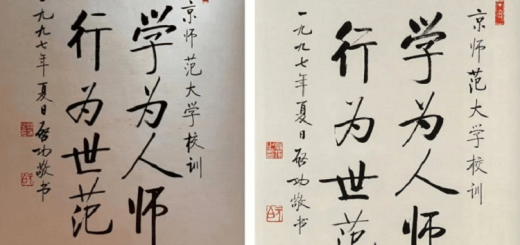 京师范大学校训
学为人师
行为世范
一九九七年夏日啓功敬书
京师范大学校训
学为人师
行为世范
一九九七年夏日啓功敬书